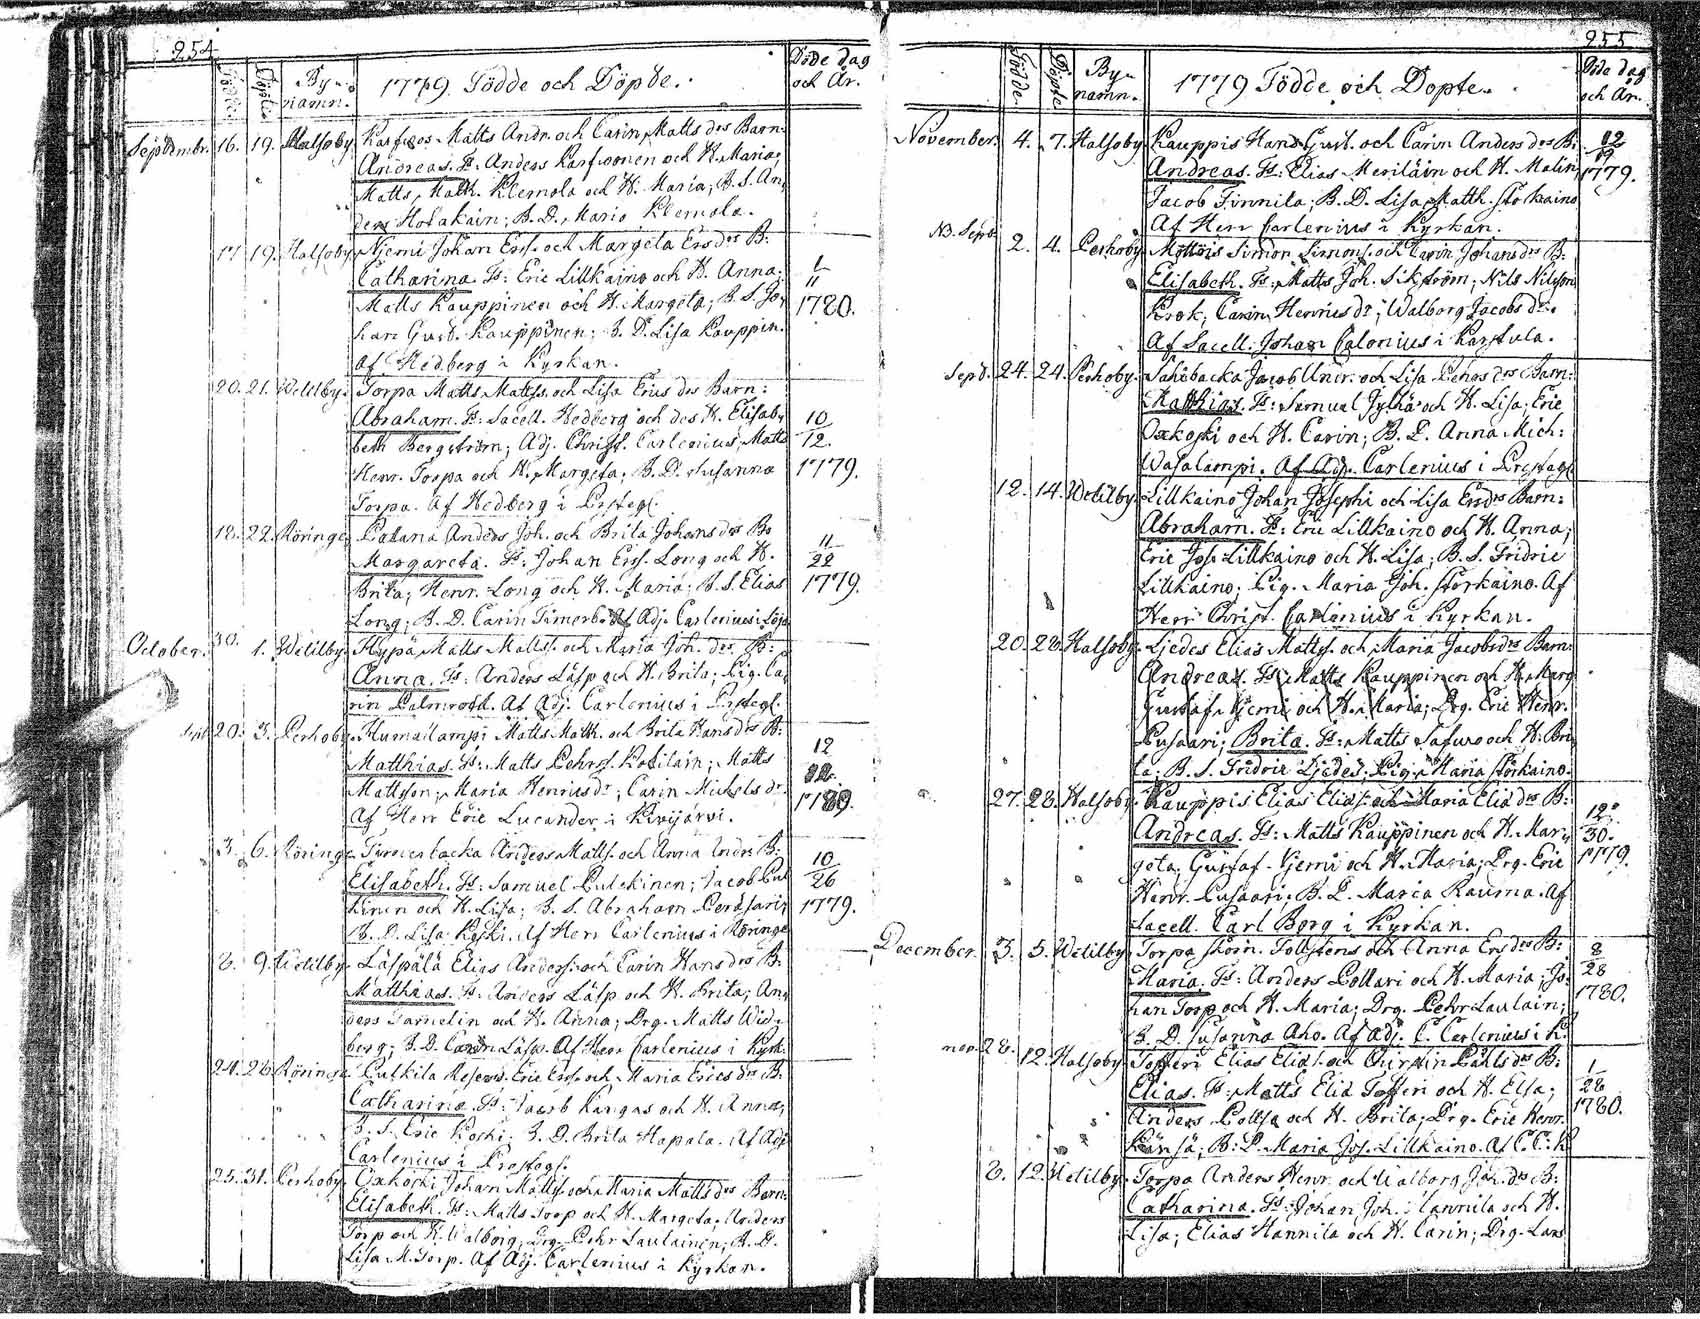 254
Födde. Döpte. By-namn. 1779. Födde och Döpde. Döde dag och År.
Septembr. 16. 19. Halsoby Matts Andr. och Carin Matts des Barn:
Andreas. Fs: Anders och H. Maria;
Matts Matth. Klemola och H. Maria; B. S. An-
ders Hotakain; B. D. Maria Klemola.
17. 19. Halsoby Njemi Johan Ersf. och Margeta Ersdes B:
Catharina. Fs: Eric Lillkaino och H. Anna;
Matts Kauppinen och H. Margeta; B. S. Jo-
han Gust. Kauppinen; B. D. Lisa Kauppin.
Af Hedberg i Kyrkan.
1/11 1780.
20. 21. Wetilby. Torpa Matts Mattss. och Lisa Erics des Barn:
Abraham. Fs: Sacell. Hedberg och des H. Elisa-
beth Bergström; Adj. Christ. Carlenius; Matts
Henr. Torpa och H. Margeta; B. D. Susanna
Torpa. Af Hedberg i Prstegl.
10/12. 1779.
18. 22. Röringe Patana Anders Joh. och Brita Johans des B:
Margareta. Fs: Johan Ersf. Long och H.
Brita; Henr. Long och H. Maria; B. S. Elias
Long; B. D. Carin Timerb. Af Adj. Carlenius i
11/22 1779.
October. 30. 1. Wetilby. Hypä Matts Mattss. och Maria Joh. des B:
Anna. Fs: Anders Läsp och H. Brita; Pig. Ca-
rin Palmroth. Af Adj. Carlenius i Prstegl.
Sept. 20. 3. Perhoby Humallampi Matts Matth. och Brita Hans des B:
Matthias. Fs: Matts Pehrss. Kotilain; Matts
Mattsson; Maria Henrics dr; Carin Michels dr.
Af Herr Eric Lucander i Kivijärvi.
12 1789.
3. 6. Röringe Timerbacka Anders Matts. och Anna Andrs B:
Elisabeth. Fs: Samuel Pulckinen; Jacob Pul-
kinen och H. Lisa; B. S. Abraham Pentsari;
B. D. Lisa Koski. Af Herr Carlenius i Röringe
10/26 1779.
8. 9. Wetilby Läspälä Elias Anderss. och Carin Hans des B:
Matthias. Fs: Anders Läsp och H. Brita; An-
ders Tamelin och H. Anna; Drg. Matts Wid-
berg; B. D. Carin Läsp. Af Herr Carlenius i Kyrk.
24. 26. Röringe Pulkila Reserv. Eric Ersf. och Maria Erics des B:
Catharina. Fs: Jacob Kangas och H. Anna;
B. S. Eric Koski; B. D. Brita Hapala. Af Adj.
Carlenius i Prstegl.
25. 31. Perhoby. Oxkoski Johan Mattss. och Maria Matts des Barn:
Elisabeth. Fs: Matts Torp och H. Margeta; Anders
Torp och H. Walborg; Drg. Pehr Laulainen; B. D.
Lisa M. Torp. Af Adj. Carlenius i Kyrkan.
255
Födde. Döpte. By-namn. 1779 Födde och Döpte. Döde dag och År.
November. 4. 7. Halsoby Kauppis Hans Gust. och Carin Anders des B:
Andreas. Fs: Elias Meriläin och H. Malin;
Jacob Finnila; B. D. Lisa Matth. Storkaino
Af Herr Carlenius i Kyrkan.
12/19 1779.
NB. Sept. 2. 4. Perhoby Möttöis Simon Simons. och Carin Johans des B:
Elisabeth. Fs: Matts Joh. Sikström; Nils Nilsson
Krok; Carin Henrics dr; Walborg Jacobs dr.
Af Sacell. Johan Calonius i Karstula.
Sept. 24. 24. Perhoby. Jacob Andr. och Lisa Pehrs des Barn:
Matthias. Fs: Samuel Jylhä och H. Lisa; Eric
Oxkoski och H. Carin; B. D. Anna Mich:
Wasalampi. Af Adj. Carlenius i Prstegl
12. 14. Wetilby. Lillkaino Johan Josephi och Lisa Ersdes Barn:
Abraham. Fs: Eric Lillkaino och H. Anna;
Eric Jos. Lillkaino och H. Lisa; B. S. Fridric
Lillkaino; Pig. Maria Joh. Storkaino. Af
Herr Christ. Carlenius i Kyrkan.
20. 28. Halsoby. Ljedes Elias Mattss. och Maria Jacobsdes Barn:
Andreas. Fs: Matts Kauppinen och H. Marg
Gustaf Njemi och H. Maria; Drg. Eric Henr.
Pusaari; Brita. Fs: Matts Safuro och H. Bri-
ta; B. S. Fridric Ljedes; Pig. Maria Storkaino.
27. 28. Halsoby. Kauppis Elias Eliass. och Maria Elia des B:
Andreas. Fs: Matts Kauppinen och H. Mar-
geta; Gustaf Njemi och H. Maria; Drg. Eric
Henr. Pusaari; B. D. Maria Rauma. Af
Sacell. Carl Borg i Kyrkan.
12/30. 1779.
December. 3. 5. Wetilby Torpa Tollstens och Anna Ersdes B:
Maria. Fs: Anders Pollari och H. Maria; Jo-
han Torp och H. Maria; Drg. Pehr Laulain;
B. D. Susanna Aho. Af Adj. C. Carlenius i K.
8/28 1780.
nov. 28. 12. Halsoby. Tofferi Elias Eliass. och Chirstin Påhls des B:
Elias. Fs: Matts Elia Tofferi och H. Elsa;
Anders och H. Brita; Drg. Eric Henr.
Känsä; B. D. Maria Jos. Lillkaino. Af C. C: K
1/28 1780.
8. 12. Wetilby. Torpa Anders Henr. och Walborg Joh. des B:
Catharina. Fs: Johan Joh. Hannila och H.
Lisa; Elias Hannila och H. Carin; Drg. Lars